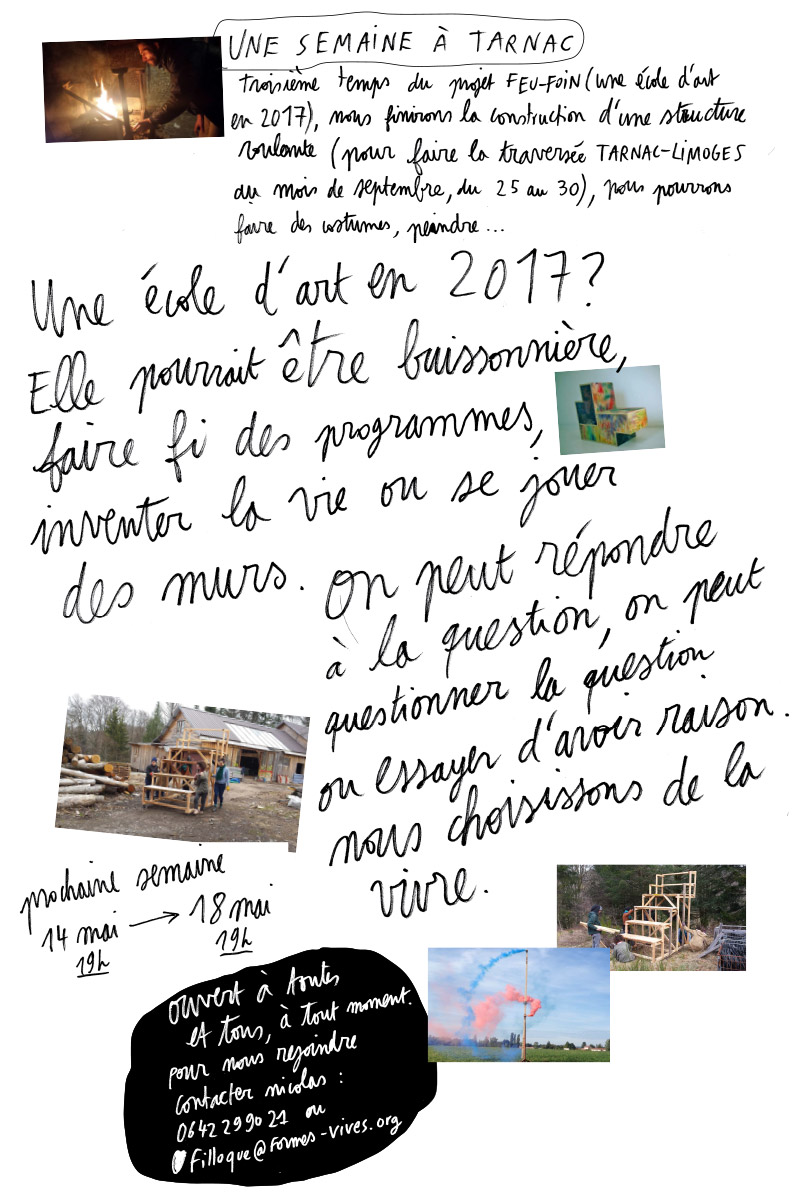 UNE SEMAINE À TARNAC
troisième temps du projet FEU-FOIN (une école d'art
en 2017), nous finirons la construction d'une structure
roulante (pour faire la traversée TARNAC-LIMOGES
au mois de septembre, du 25 au 30), nous pourrons
faire des costumes, peindre...
Une école d'art en 2017?
Elle pourrait être buissonnière,
faire fi des programmes,
inventer la vie ou se jouer
des murs. On peut répondre
à la question, on peut
questionner la question
ou essayer d'avoir raison.
nous choisissons de la
vivre.
prochaine semaine
14 mai → 18 mai
19h 19h
ouvert à toutes
et tous, à tout moment.
pour nous rejoindre
contacter nicolas :
06 42 29 90 21 ou
filloque@formes-vives.org